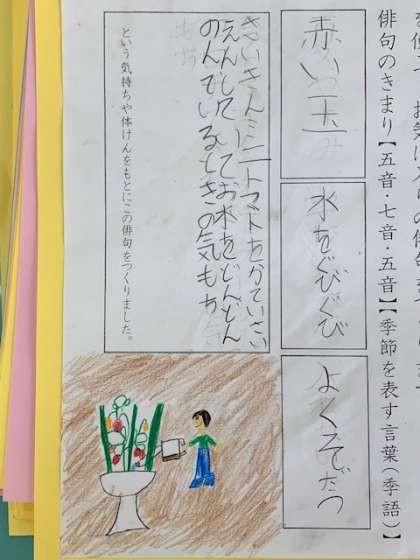 お気に入りの俳句を
俳句のきまり【五音・七音・五音】【季節を表す言葉(季語)】
赤い玉
水をぐびぐび
よくそだつ
さいきんミニトマトをかていさい
えんしていてお水をどんどん
のんでいるときの気もち
という気持ちや体けんをもとにこの俳句をつくりました。